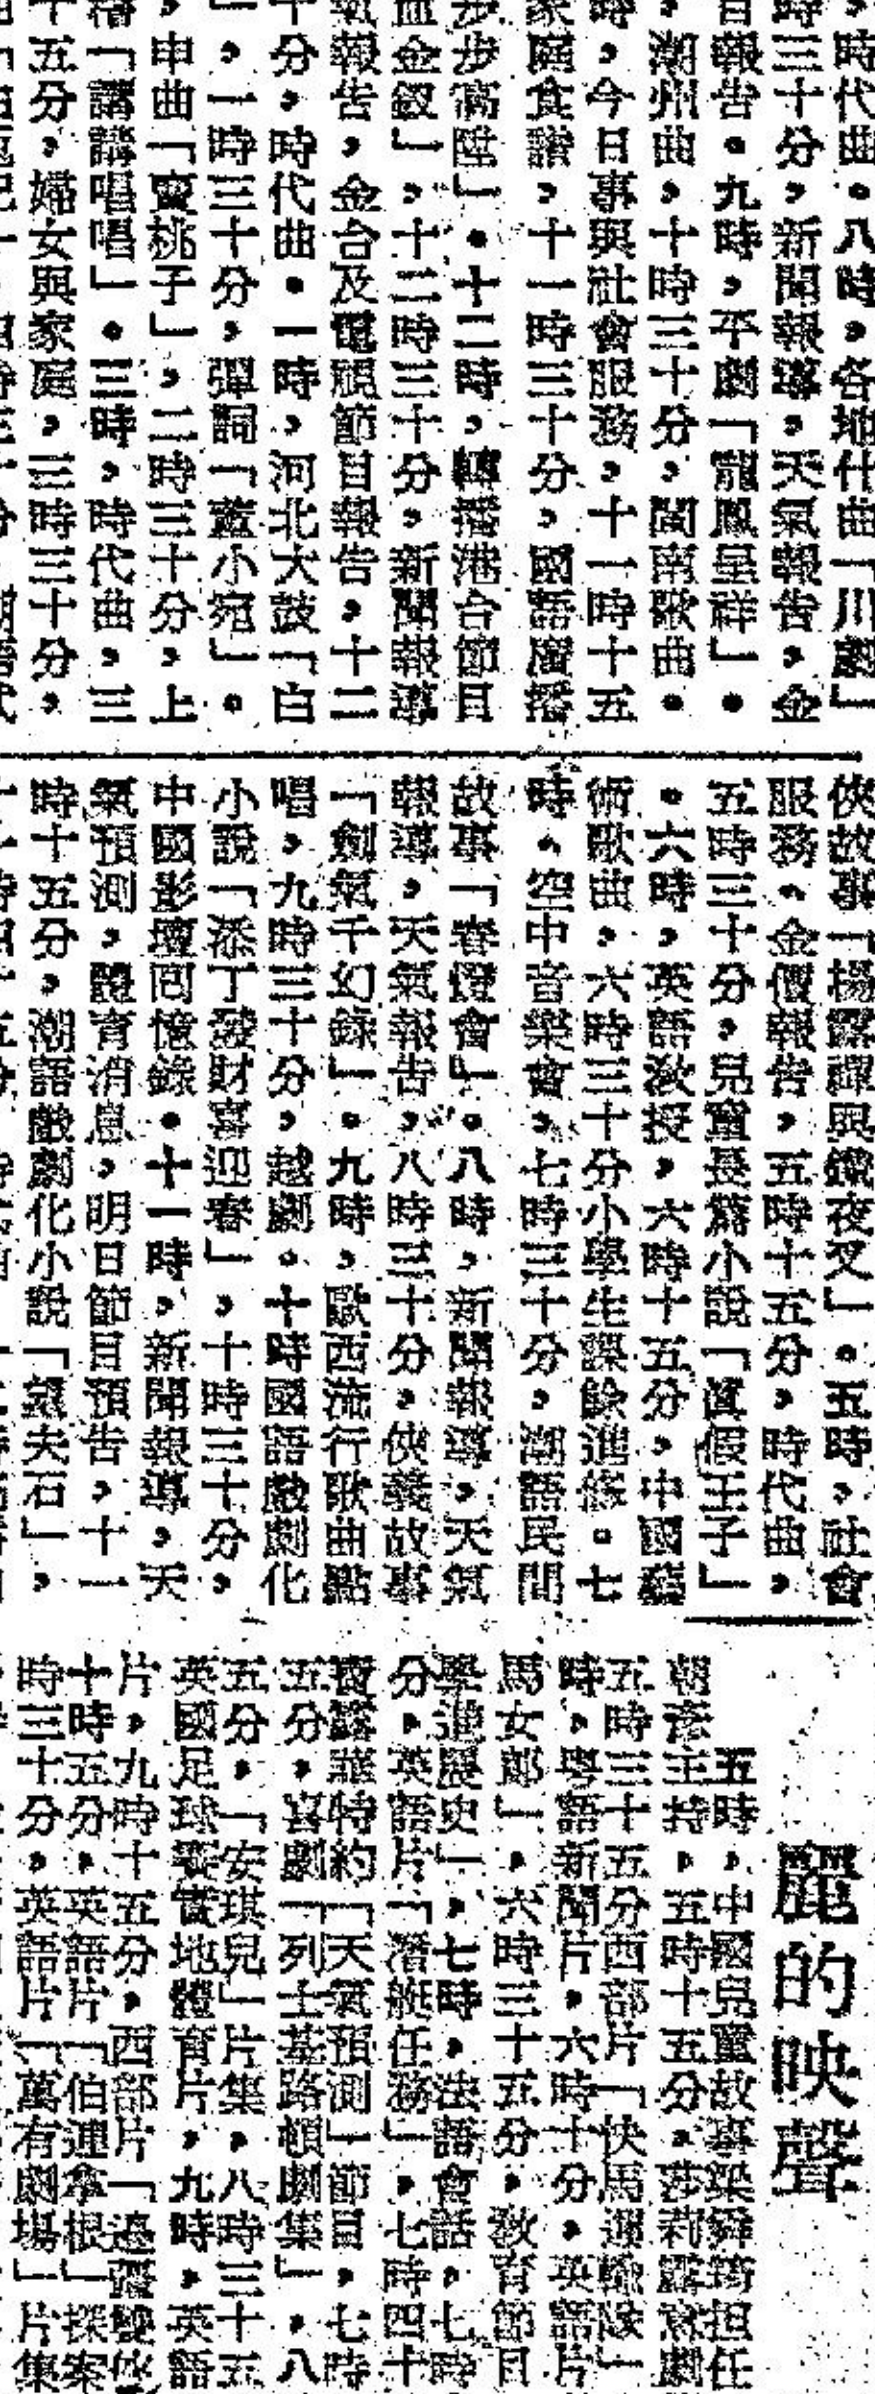 ，時代曲。八時，各地什曲「川劇」
時三十分，新聞報導，天氣報告，金
日報告。九時，平劇「龍鳳呈祥」。
，潮州曲，十時三十分，閩南歌曲。
時，今日事與社會服務，十一時十五
家庭食譜，十一時三十分，國語廣播
步步高陞」。十二時，轉播港台節目
血金釵」，十二時三十分，新聞報導
氣報告，金台及電視節目報告，十二
十分，時代曲。一時，河北大鼓「白
」，一時三十分，彈詞「董小宛」。
，申曲「賣桃子」，二時三十分，上
「講講唱唱」。三時，時代曲，三
十五分，婦女與家庭，三時三十分，
俠故事「揚露禪與鐵夜叉」。五時，社會
服務，金價報告，五時十五分，時代曲，
五時三十分，兒童長篇小說「真假王子」
。六時，英語教授，六時十五分，中國藝
術歌曲，六時三十分小學生課餘進修。七
時，空中音樂會，七時三十分，潮語民間
故事「春燈會」。八時，新聞報導，天氣
報導，天氣報告，八時三十分，俠義故事
「劍氣千幻錄」。九時，歐西流行歌曲點
唱，九時三十分，越劇。十時國語戲劇化
小說「添丁發財喜迎春」，十時三十分，
中國影壇回憶錄。十一時，新聞報導，天
氣預測，體育消息，明日節目預告，十一
時十五分，潮語戲劇化小說「望夫石」，
麗的映聲
五時，中國兒童故事梁舜琦担任
朝彥主持，五時十五分，莎莉露意劇
五時三十五分西部片「快馬運輸隊」
時，粵語新聞片，六時十分，英語片
馬女郎」，六時三十五分，教育節目
學進歷史」，七時，法語會話，七時
分，英語片「潛艇任務」，七時四十
賣露華特約「天氣預測」節目，七時
五分，喜劇「列士基路頓劇集」，八
五分，「安琪兒」片集，八時三十五
英國足球賽實地體育片，九時，英語
片，九時十五分，西部片「邊疆雙俠
十時五分，英語片「伯連拿根」探案
時三十分，英語片「萬有劇場」片集